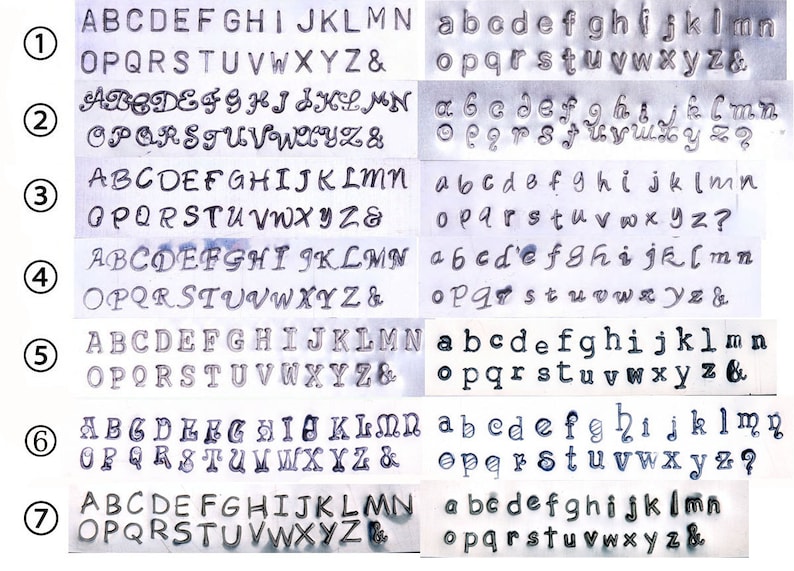 ① ABCDEFGHIJKLMN abcdefghijklmn
OPQRSTUVWXYZ& opqrstuvwxyz&
② ABCDEFGHIJKLMN abcdefghijklmn
OPQRSTUVWXYZ& opqrstuvwxyz?
③ ABCDEFGHIJKLMN abcdefghijklmn
OPQRSTUVWXYZ& opqrstuvwxyz?
④ ABCDEFGHIJKLMN abcdefghijklmn
OPQRSTUVWXYZ& opqrstuvwxyz&
⑤ ABCDEFGHIJKLMN abcdefghijklmn
OPQRSTUVWXYZ& opqrstuvwxyz&
⑥ ABCDEFGHIJKLMN abcdefghijklmn
OPQRSTUVWXYZ& opqrstuvwxyz?
⑦ ABCDEFGHIJKLMN abcdefghijklmn
OPQRSTUVWXYZ& opqrstuvwxyz&